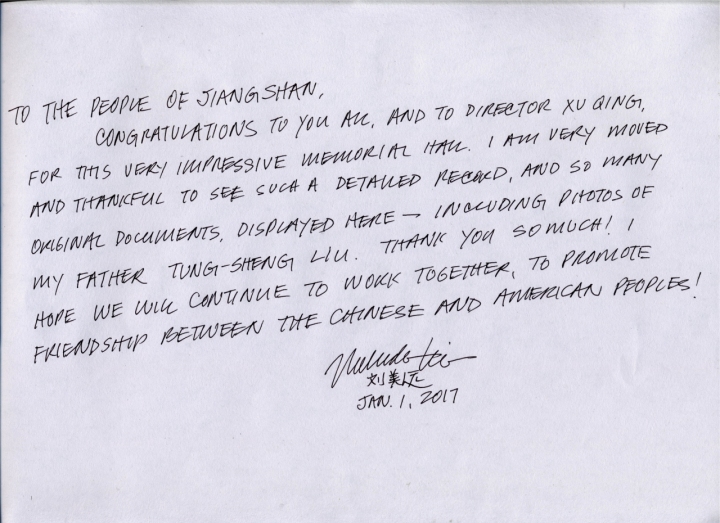 TO THE PEOPLE OF JIANGSHAN,
CONGRATULATIONS TO YOU ALL, AND TO DIRECTOR XU QING,
FOR THIS VERY IMPRESSIVE MEMORIAL HALL. I AM VERY MOVED
AND THANKFUL TO SEE SUCH A DETAILED RECORD, AND SO MANY
ORIGINAL DOCUMENTS, DISPLAYED HERE — INCLUDING PHOTOS OF
MY FATHER TUNG-SHENG LIU. THANK YOU SO MUCH! I
HOPE WE WILL CONTINUE TO WORK TOGETHER, TO PROMOTE
FRIENDSHIP BETWEEN THE CHINESE AND AMERICAN PEOPLES!
刘美远
JAN. 1, 2017